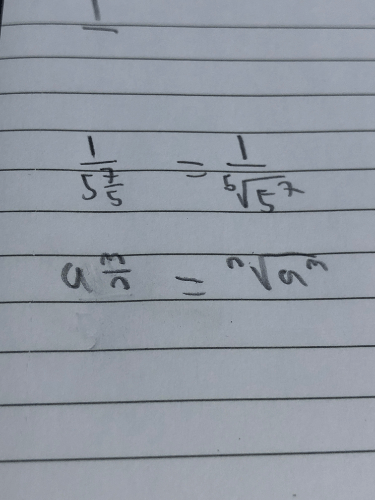 1/5^(7/5) = 1/⁵√5^7
a^(m/n) = ⁿ√a^m